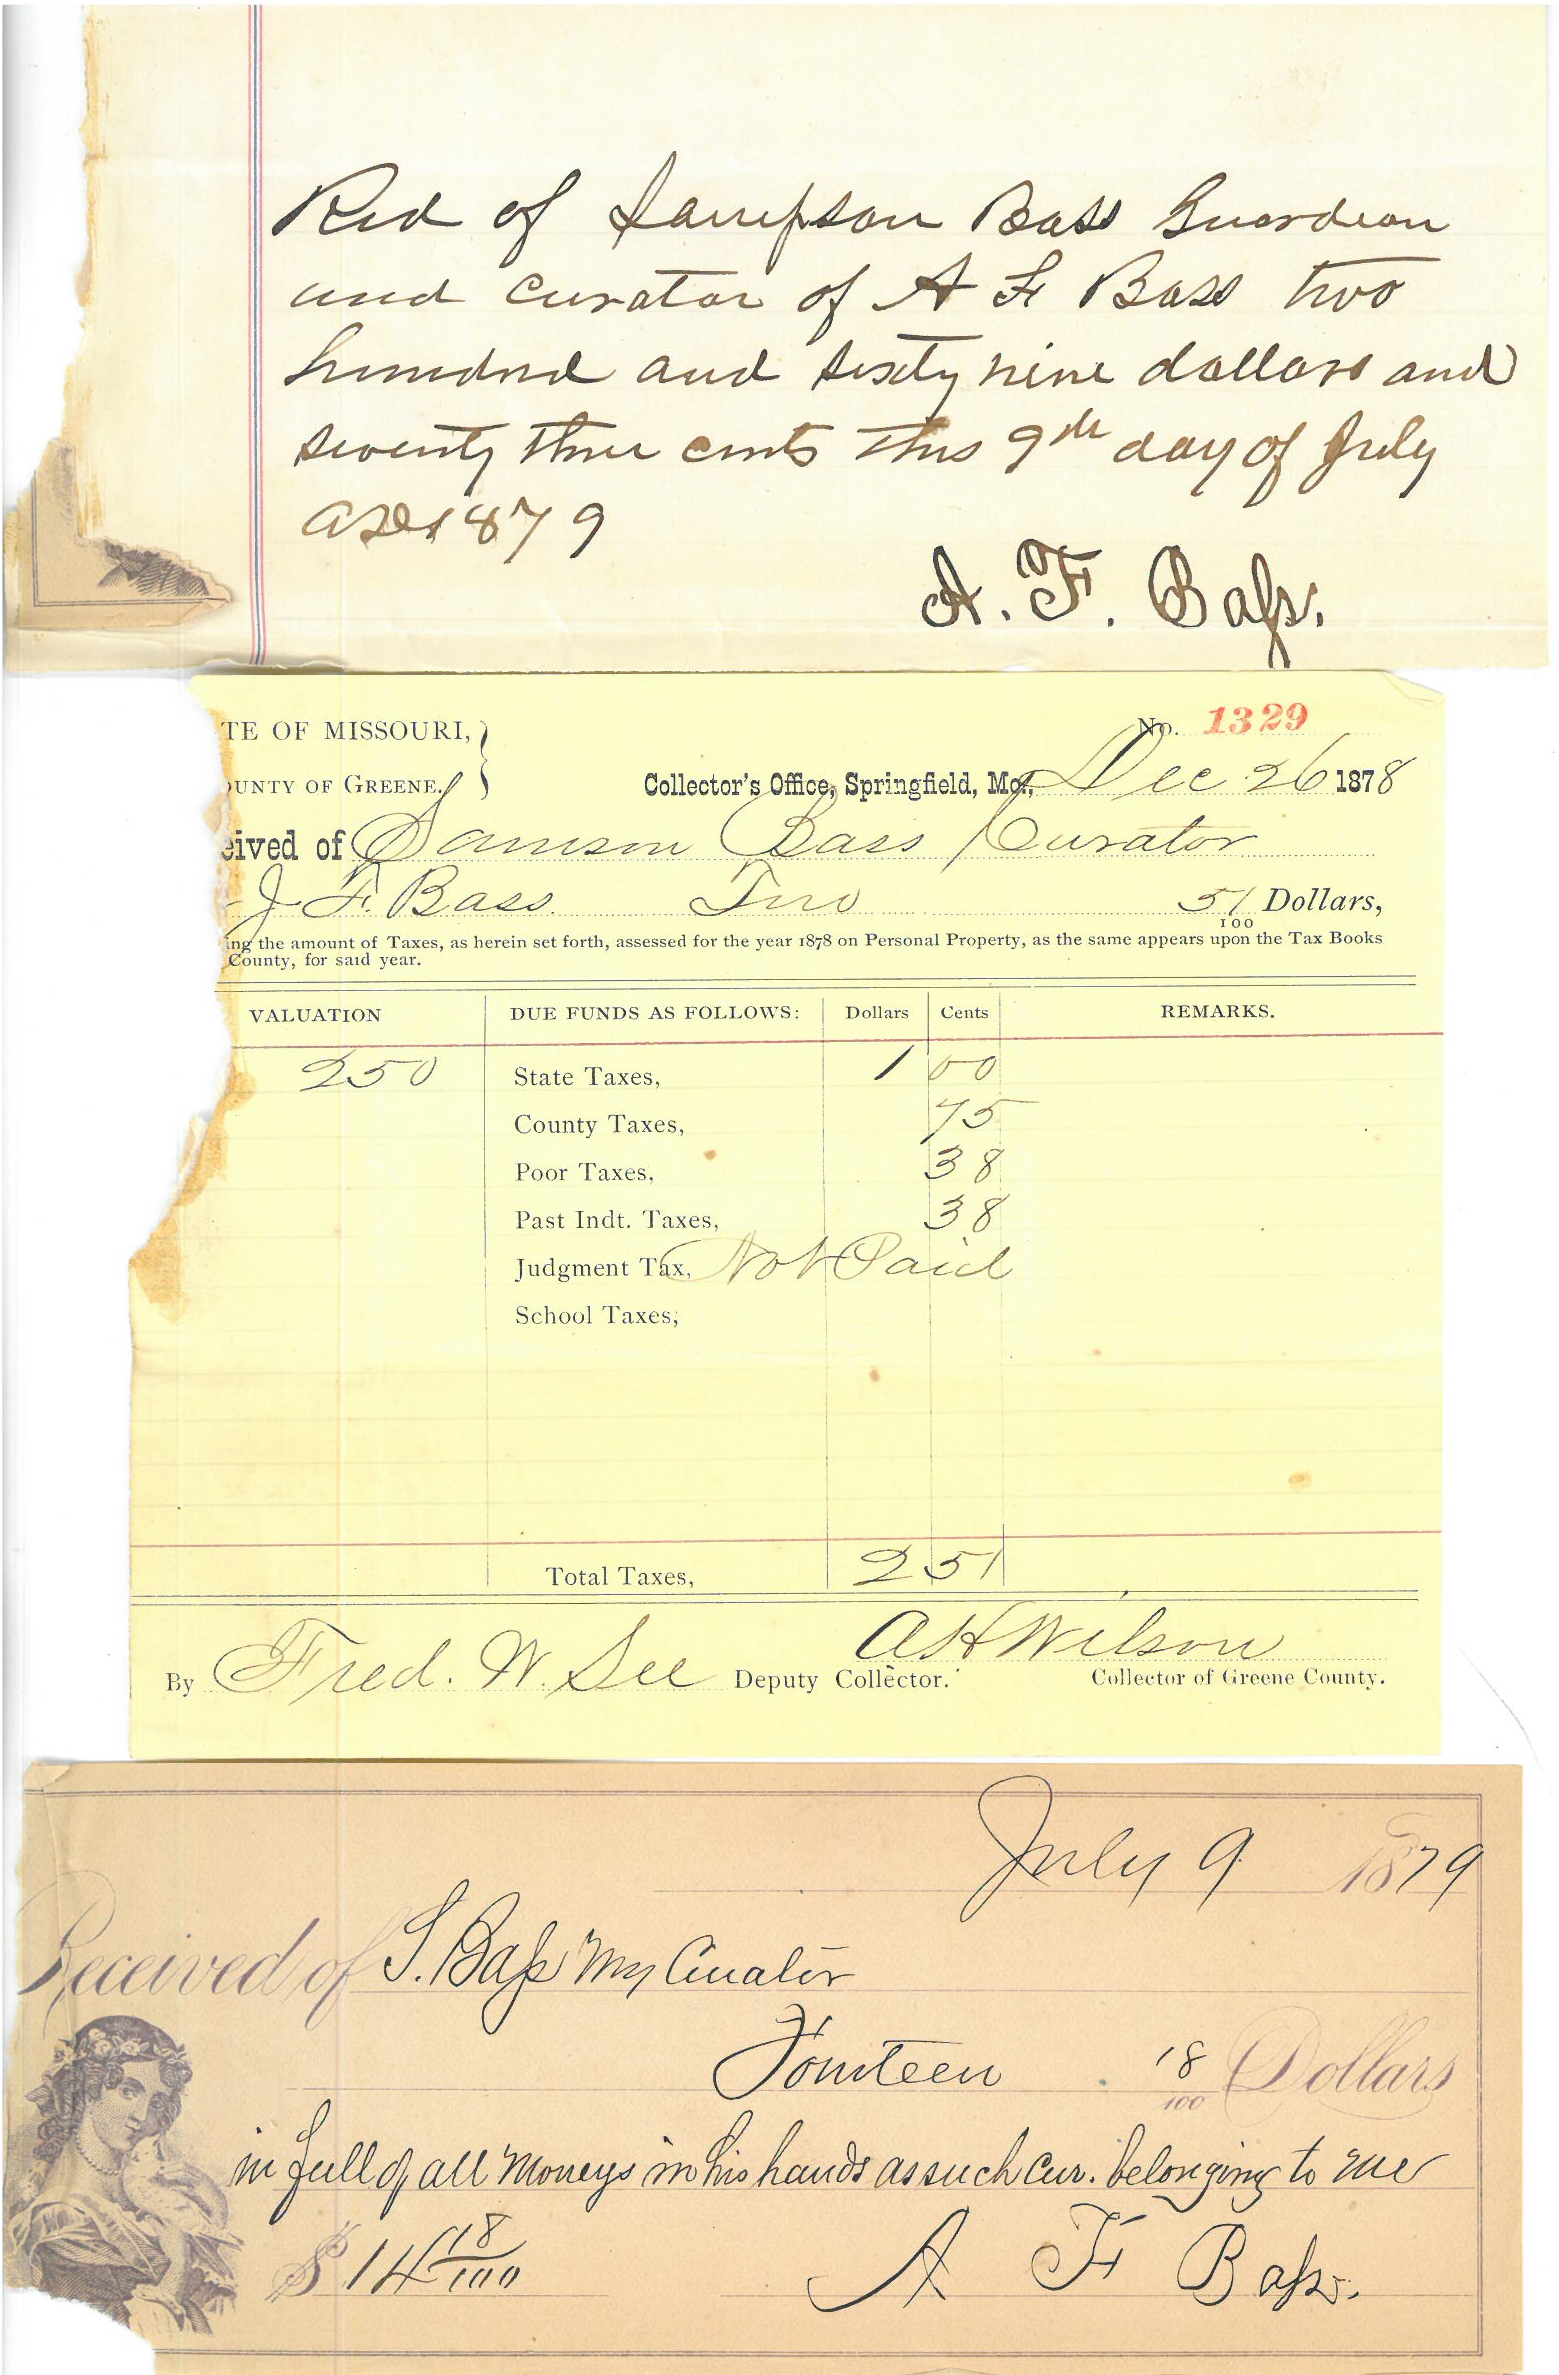 Recd of Sampson Bass Guardean
and curator of A F Bass two
hundred and sixty nine dollars and
seventy three cents this 9th day of July
AD 1879
A. F. Bass.
TE OF MISSOURI,
OUNTY OF GREENE.
No. 1329
Collector's Office, Springfield, Mo., Dec 26 1878
eived of Samson Bass Curator
J. F. Bass. Two 51/100 Dollars,
ing the amount of Taxes, as herein set forth, assessed for the year 1878 on Personal Property, as the same appears upon the Tax Books
County, for said year.
VALUATION DUE FUNDS AS FOLLOWS: Dollars Cents REMARKS.
250 State Taxes, 1 00
County Taxes, 75
Poor Taxes, 38
Past Indt. Taxes, 38
Judgment Tax, Not Paid
School Taxes,
Total Taxes, 2 51
A H Wilson
By Fred. W. See Deputy Collector. Collector of Greene County.
July 9 1879
Received of S. Bass my Curator
Fourteen 18/100 Dollars
in full of all moneys in his hands as such cur. belonging to me
$ 14 18/100 A F Bass.